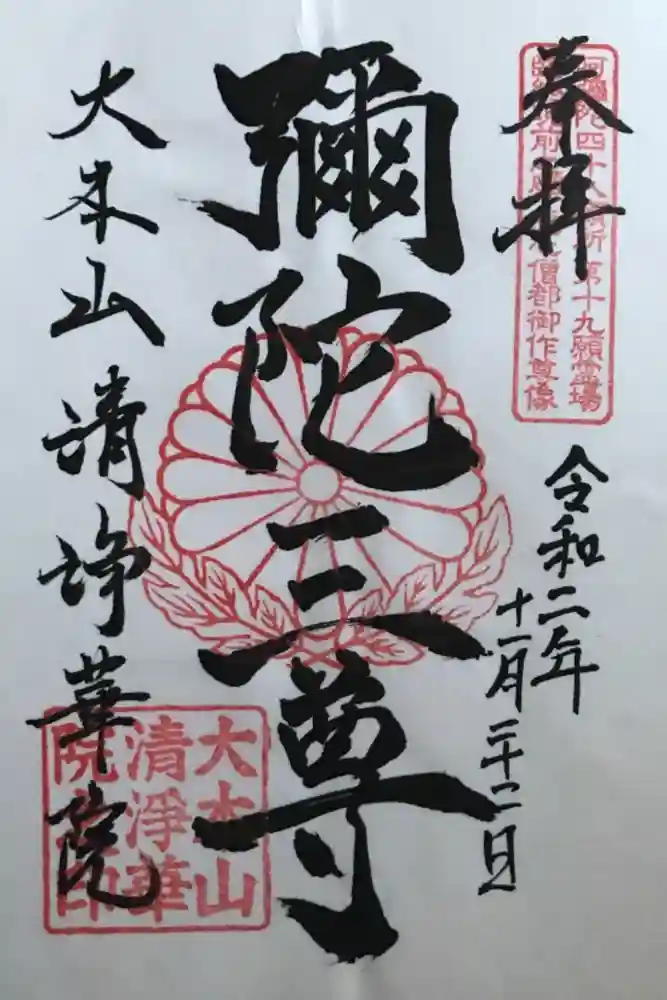 奉拝
阿彌陀四十八願所 第十九願霊場
僧都御作尊像
令和二年
十一月二十二日
彌陀三尊
大本山清浄華院
大本山
清淨華
院之印